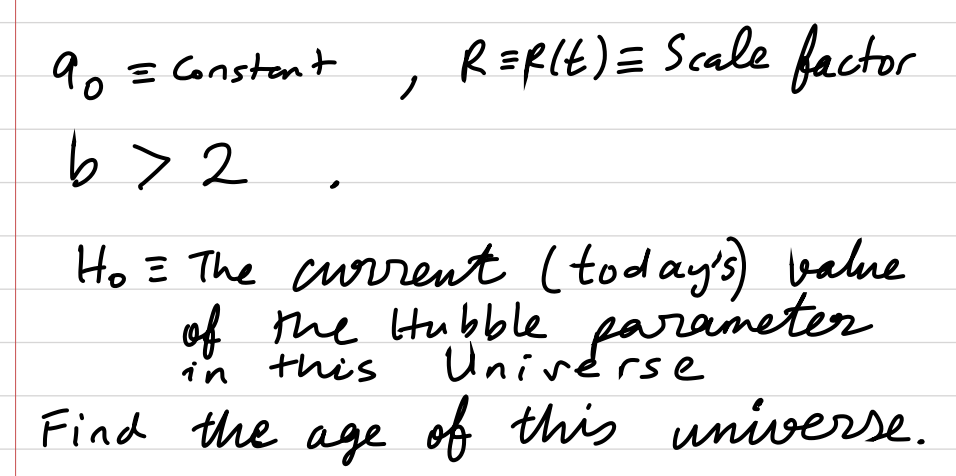 a₀ ≡ Constant , R ≡ R(t) ≡ Scale factor
b > 2 .
H₀ ≡ The current (today's) value
of the Hubble parameter
in this Universe
Find the age of this universe.